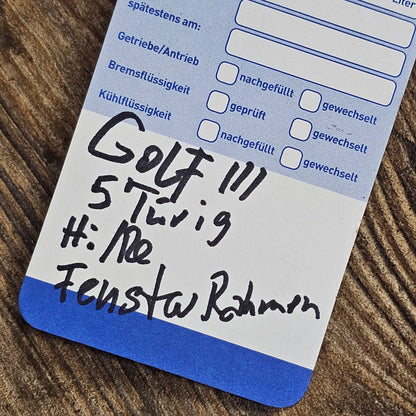 Liter
spätestens am:
Getriebe/Antrieb
Bremsflüssigkeit nachgefüllt gewechselt
Kühlflüssigkeit geprüft gewechselt
nachgefüllt gewechselt
Golf III
5 Türig
H: Re
Fenster Rahmen